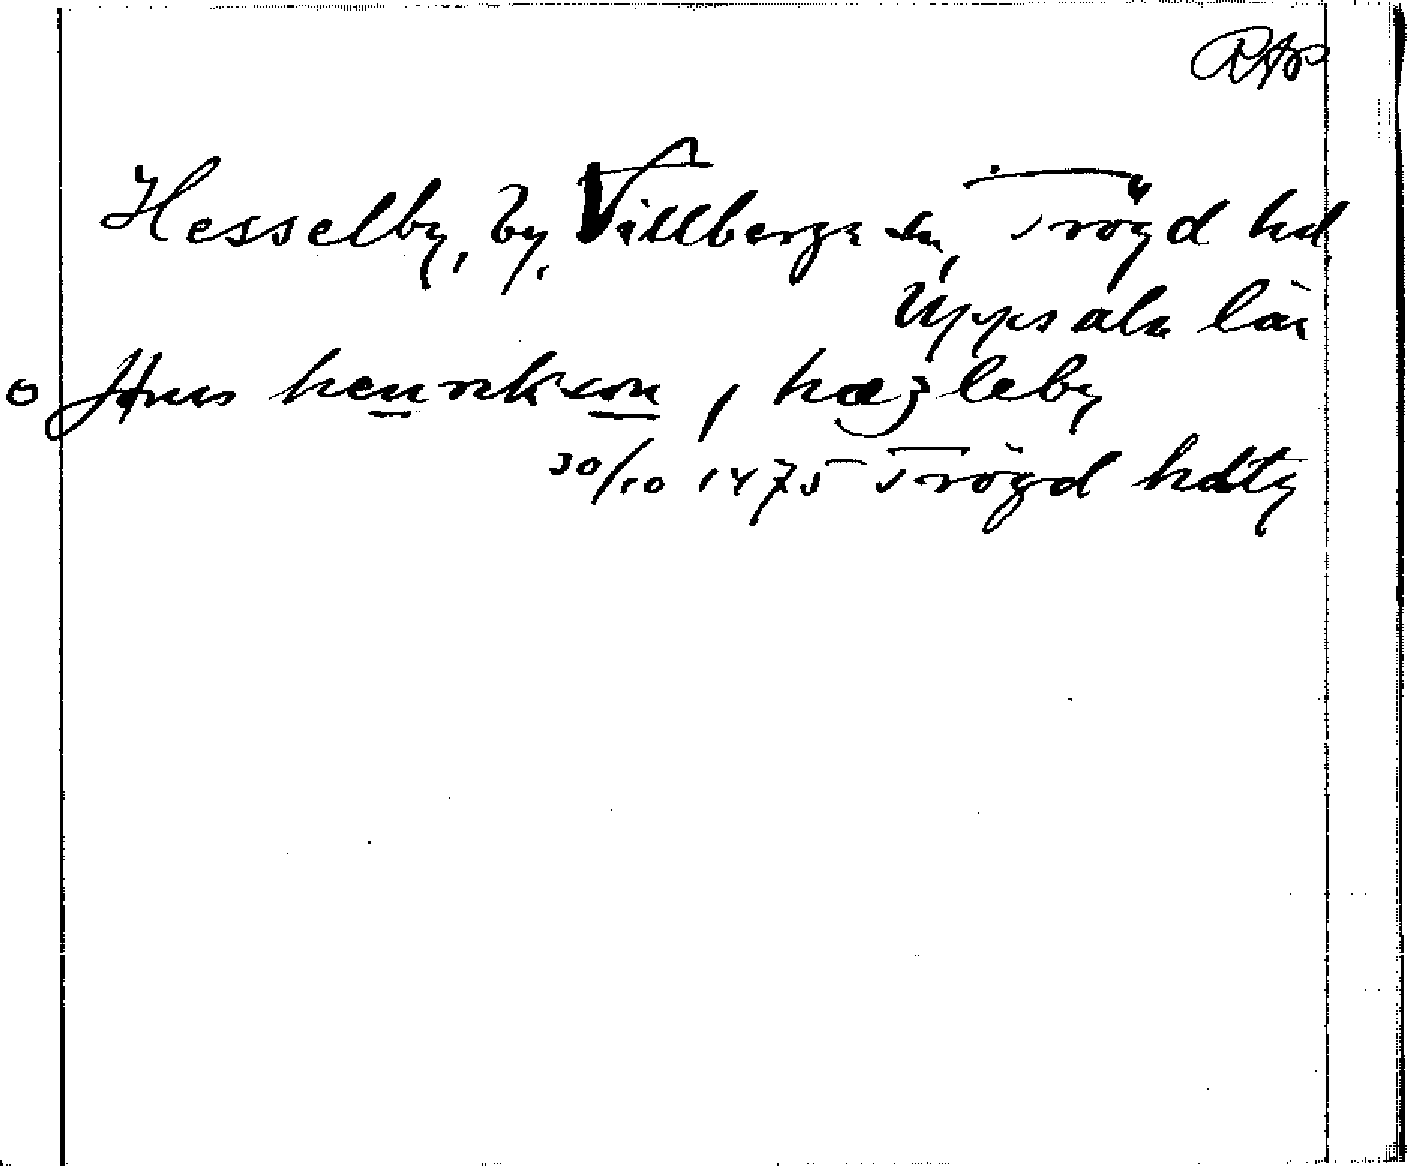 RAP
Hesselby, by, Villberga sn, Trögd hd
Uppsala län
o Hans henrikson, hæzleby
30/10 1475 Trögd hdtg